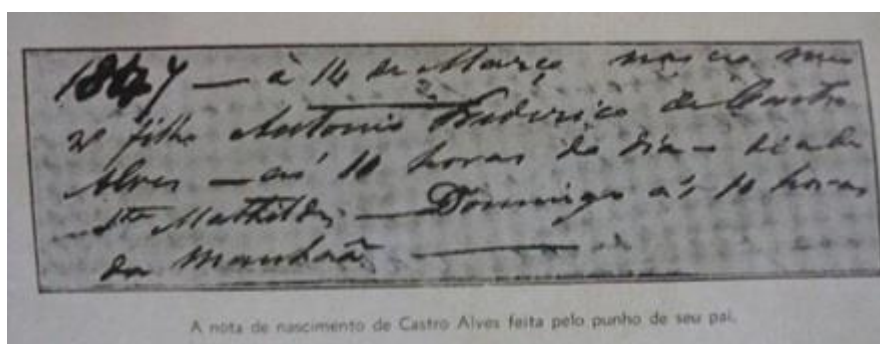 1847 — à 14 de Março nasceu meu
2º filho Antonio Frederico de Castro
Alves — às 10 horas do dia —
Sta Mathilde — Domingo às 10 horas
da manhaã
A nota de nascimento de Castro Alves feita pelo punho de seu pai.